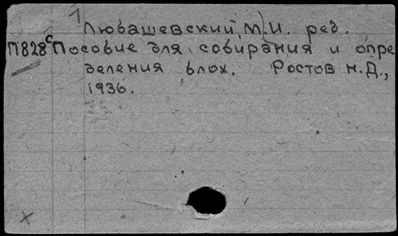 Любашевский, М.И. ред.
П828с Пособие для собирания и опре
деления блох. Ростов н.Д.,
1936.